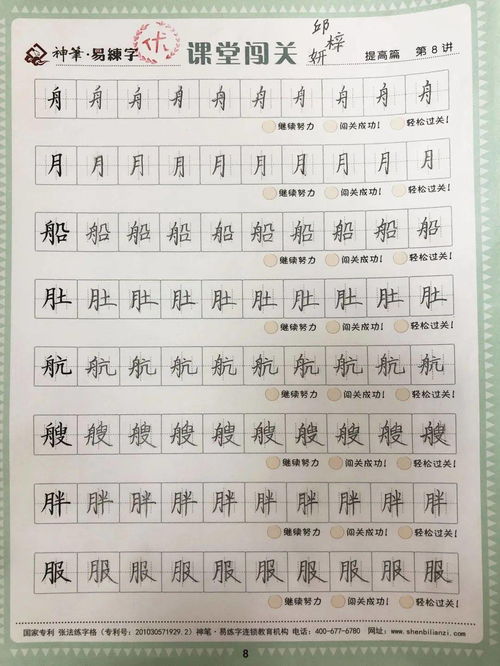 神筆·易練字 优 课堂闯关 邱梓妍 提高篇 第8讲
舟 舟 舟 舟 舟 舟 舟 舟 舟 舟
继续努力 闯关成功! 轻松过关!
月 月 月 月 月 月 月 月 月 月
继续努力 闯关成功! 轻松过关!
船 船 船 船 船 船 船 船 船 船
继续努力 闯关成功! 轻松过关!
肚 肚 肚 肚 肚 肚 肚 肚 肚 肚
继续努力 闯关成功! 轻松过关!
航 航 航 航 航 航 航 航 航 航
继续努力 闯关成功! 轻松过关!
艘 艘 艘 艘 艘 艘 艘 艘 艘 艘
继续努力 闯关成功! 轻松过关!
胖 胖 胖 胖 胖 胖 胖 胖 胖 胖
继续努力 闯关成功! 轻松过关!
服 服 服 服 服 服 服 服 服 服
继续努力 闯关成功! 轻松过关!
国家专利 张法练字格(专利号:201030571929.2)神笔·易练字连锁教育机构 电话:400-677-6780 网址:www.shenbilianzi.com
8